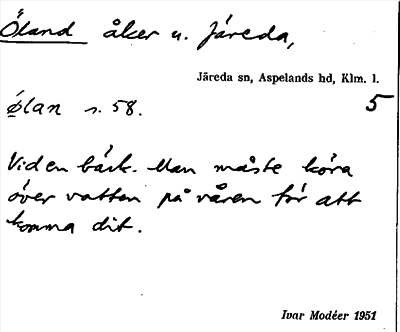 Öland åker u. Järeda,
Järeda sn, Aspelands hd, Klm. l.
5
ølan s. 58.
Vid en bäck. Man måste köra
över vatten på våren för att
komma dit.
Ivar Modéer 1951